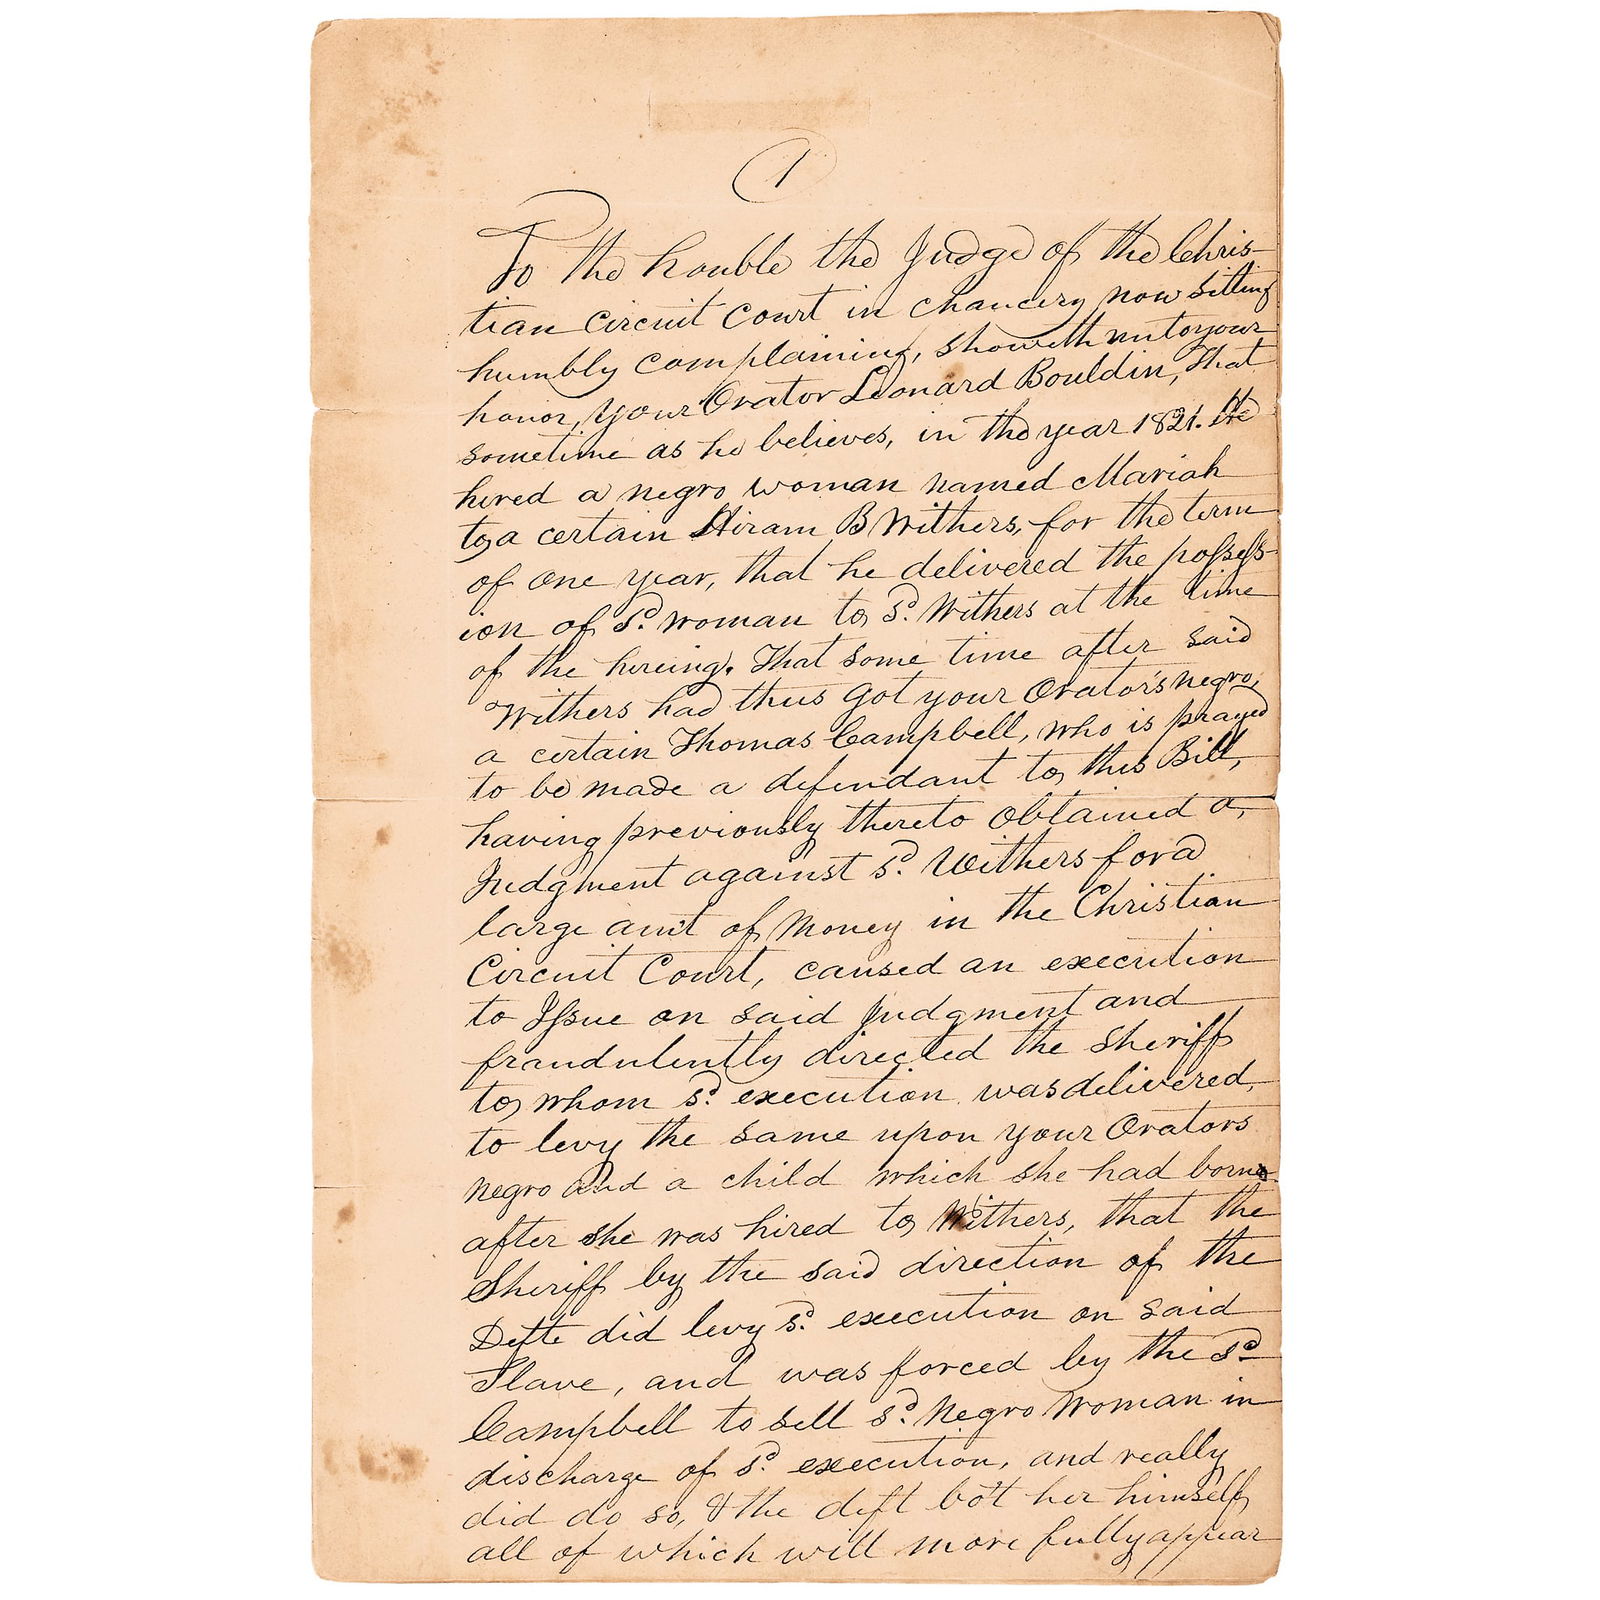 1
To the honble the Judge of the Chris-
tian Circuit Court in chancery now sitting
humbly complaining, showeth unto your
honor, your Orator Leonard Bouldin, That
sometime as he believes, in the year 1821. He
hired a negro woman named Mariah
to a certain Hiram B Withers, for the term
of one year, that he delivered the possess-
ion of sd. woman to sd. Withers at the time
of the hireing. That some time after said
Withers had thus got your Orator's negro,
a certain Thomas Campbell, who is prayed
to be made a defendant to this Bill,
having previously thereto obtained a
Judgment against sd. Withers for a
large amt of money in the Christian
Circuit Court, caused an execution
to Issue on said Judgment and
fraudulently directed the sheriff
to whom sd. execution was delivered,
to levy the same upon your Orators
negro and a child which she had borne
after she was hired to Withers, that the
Sheriff by the said direction of the
Defte did levy sd. execution on said
Slave, and was forced by the sd
Campbell to sell sd. Negro woman in
discharge of sd. execution, and really
did do so, & the deft bo't her himself,
all of which will more fully appear